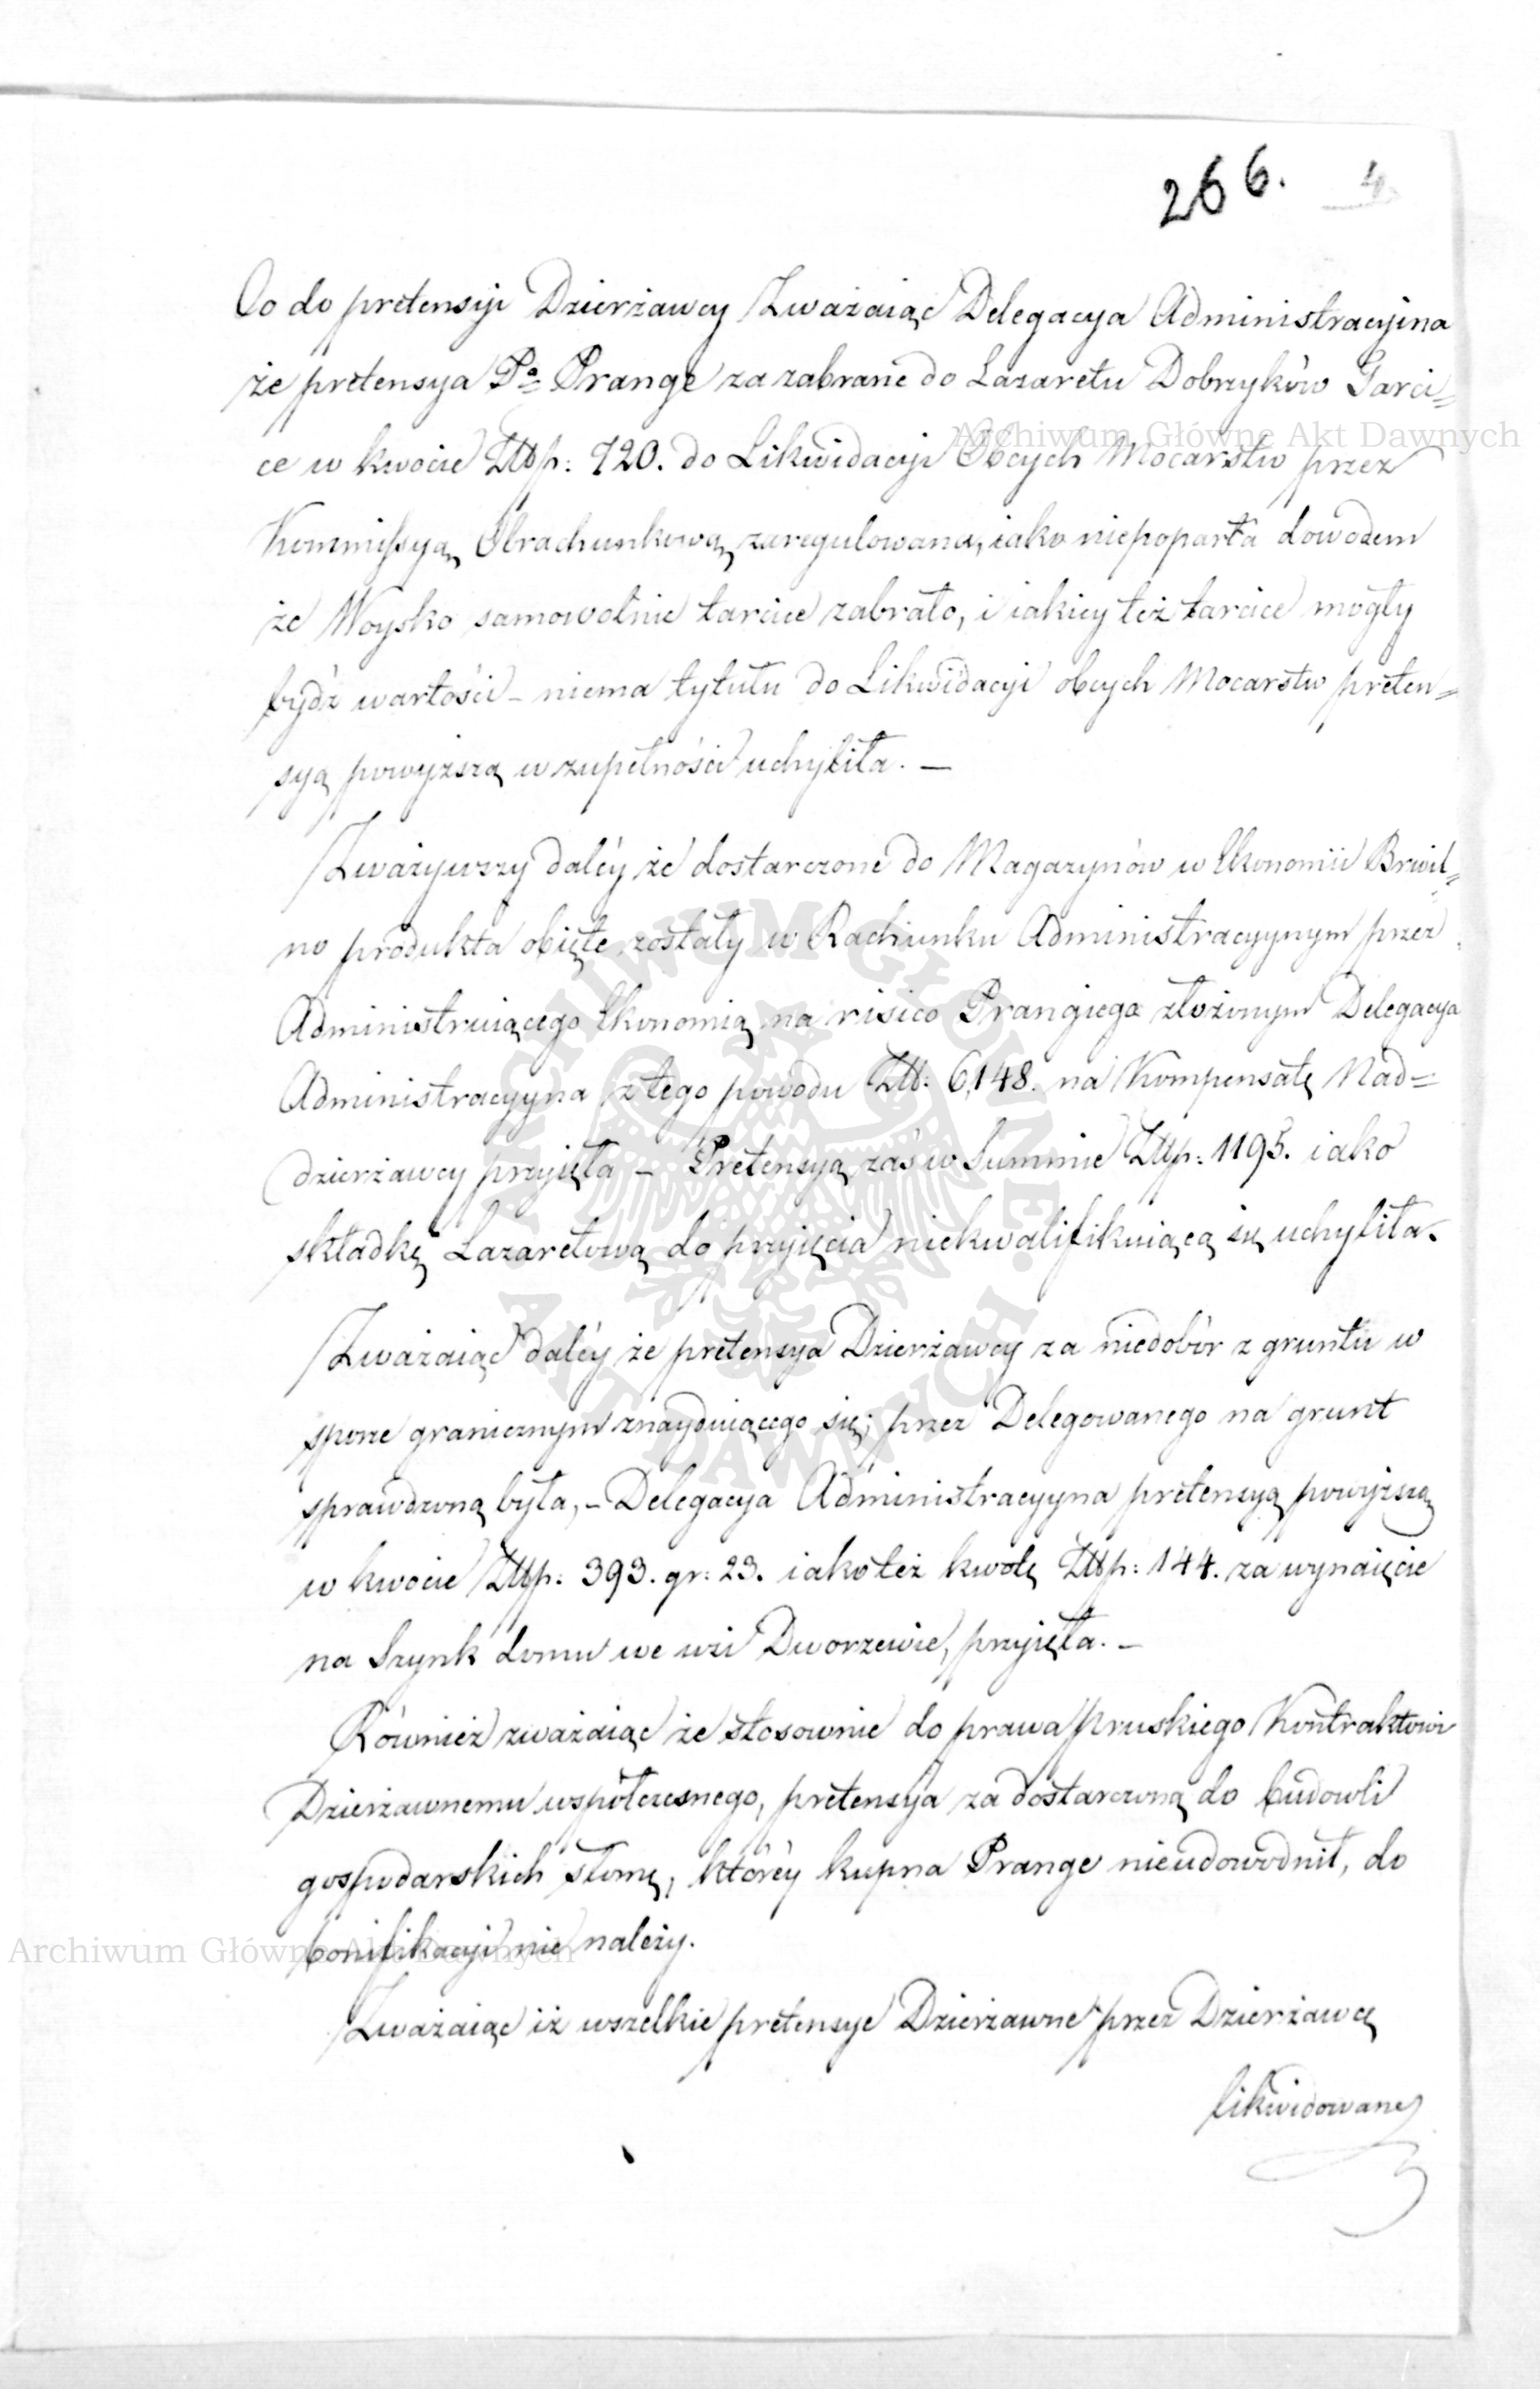 266. 4
Co do pretensyi Dzierżawcy Zważaiąc Delegacya Administracyina
że pretensya Pa Prange za zabrane do Lazaretu Dobrzyków Tarci=
ce w kwocie Złłp: 720. do Likwidacyi Obcych Mocarstw przez
Kommissyą Obrachunkową zaregulowana, iako niepoparta dowodem
że Woysko samowolnie tarcice zabrało, i iakiey też tarcice mogły
bydź wartości – niema tytułu do Likwidacyi obcych Mocarstw preten=
syą powyższą w zupełności uchyliła. –
Zważywszy daléy że dostarczone do Magazynów w Ekonomii Brwil=
no produkta obięte zostały w Rachunku Administracyynym przez
Administruiącego Ekonomią na risico Prangiego złożonym Delegacya
Administracyyna z tego powodu Złł: 6,148. na Kompensatę Nad=
dzierżawcy przyięła – Pretensyą zaś w Summie Złłp: 1195. iako
składkę Lazaretową do przyięcia niekwalifikuiącą się uchyliła.
Zważaiąc daléy że pretensya Dzierżawcy za niedobór z gruntu w
sporze granicznym znayduiącego się; przez Delegowanego na grunt
sprawdzoną była, – Delegacya Administracyyna pretensyą powyższą
w kwocie Złłp: 393. gr: 23. iako też kwotę Złłp: 144. za wynaięcie
na Szynk domu we wsi Dworzewie, przyięła. –
Również zważaiąc że stosownie do prawa pruskiego Kontraktowi
Dzierżawnemu współczesnego, pretensya za dostarczoną do budowli
gospodarskich słomę, któréy kupna Prange nieudowodnił, do
bonifikacyi nie należy.
Zważaiąc iż wszelkie pretensye Dzierżawne przez Dzierżawcę
likwidowane
Archiwum Główne Akt Dawnych
ARCHIWUM GŁÓWNE AKT DAWNYCH
Archiwum Główne Akt Dawnych